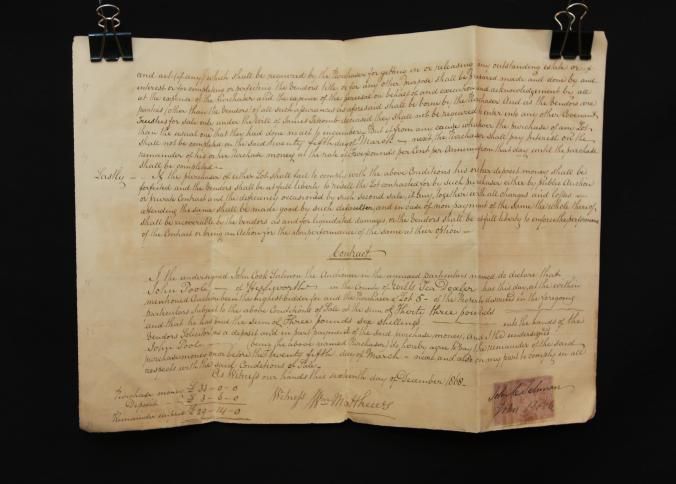 and act (if any) which shall be required by the Purchaser for getting in or releasing any outstanding estate or
interest or for completing or perfecting the Vendors title, or for any other purpose shall be prepared made and done by and
at the expense of the Purchaser and the expence of the perusal on behalf of and execution and acknowledgement by all
parties other than the Vendors of all such assurances as aforesaid shall be borne by the Purchaser And as the Vendors are
Trustees for sale only under the Will of James deceased they shall not be required to enter into any other Covenant
than the usual one that they had done no act to incumber. But if from any cause whatever the purchase of any Lot
shall not be completed on the said twenty fifth day of March next the Purchaser shall pay interest on the
remainder of his or her Purchase money at the rate of Five pounds per Cent per Annum from that day until the purchase
shall be completed
Lastly If the purchaser of either Lot shall fail to comply with the above Conditions his or her deposit money shall be
forfeited and the Vendors shall be at full liberty to resell the Lot contracted for by such purchaser either by Public Auction
or private Contract and the deficiency occasioned by such second sale, if any, together with all charges and losses
attending the same shall be made good by such defaulter, and in case of non payment of the same the whole thereof
shall be recoverable by the Vendors as and for liquidated damages or the Vendors shall be at full liberty to enforce the performance
of the Contract or bring an Action for the nonperformance of the same at their option
Contract
I the undersigned John Cook Salmon the Auctioneer in the annexed particulars named do declare that
John Poole of in the County of Wilts Tea Dealer has this day, at the within
mentioned Auction been the highest bidder for and the Purchaser of Lot 5 of the Property described in the foregoing
particulars Subject to the above Conditions of Sale at the sum of Thirty three pounds
and that he has paid the sum of Three pounds six shillings into the hands of the
Vendors Solicitor as a deposit and in part payment of the said purchase money, And I the undersigned
John Poole (being the above named Purchaser) do hereby agree to pay the remainder of the said
purchase money on or before the twenty fifth day of March next and also on my part to comply in all
respects with the said Conditions of Sale
As Witness our hands this sixteenth day of December 1868
Purchase money £33-0-0
Deposit £3-6-0
Remainder £29-14-0
Witness Wm Matthews
John C Salmon
John Poole